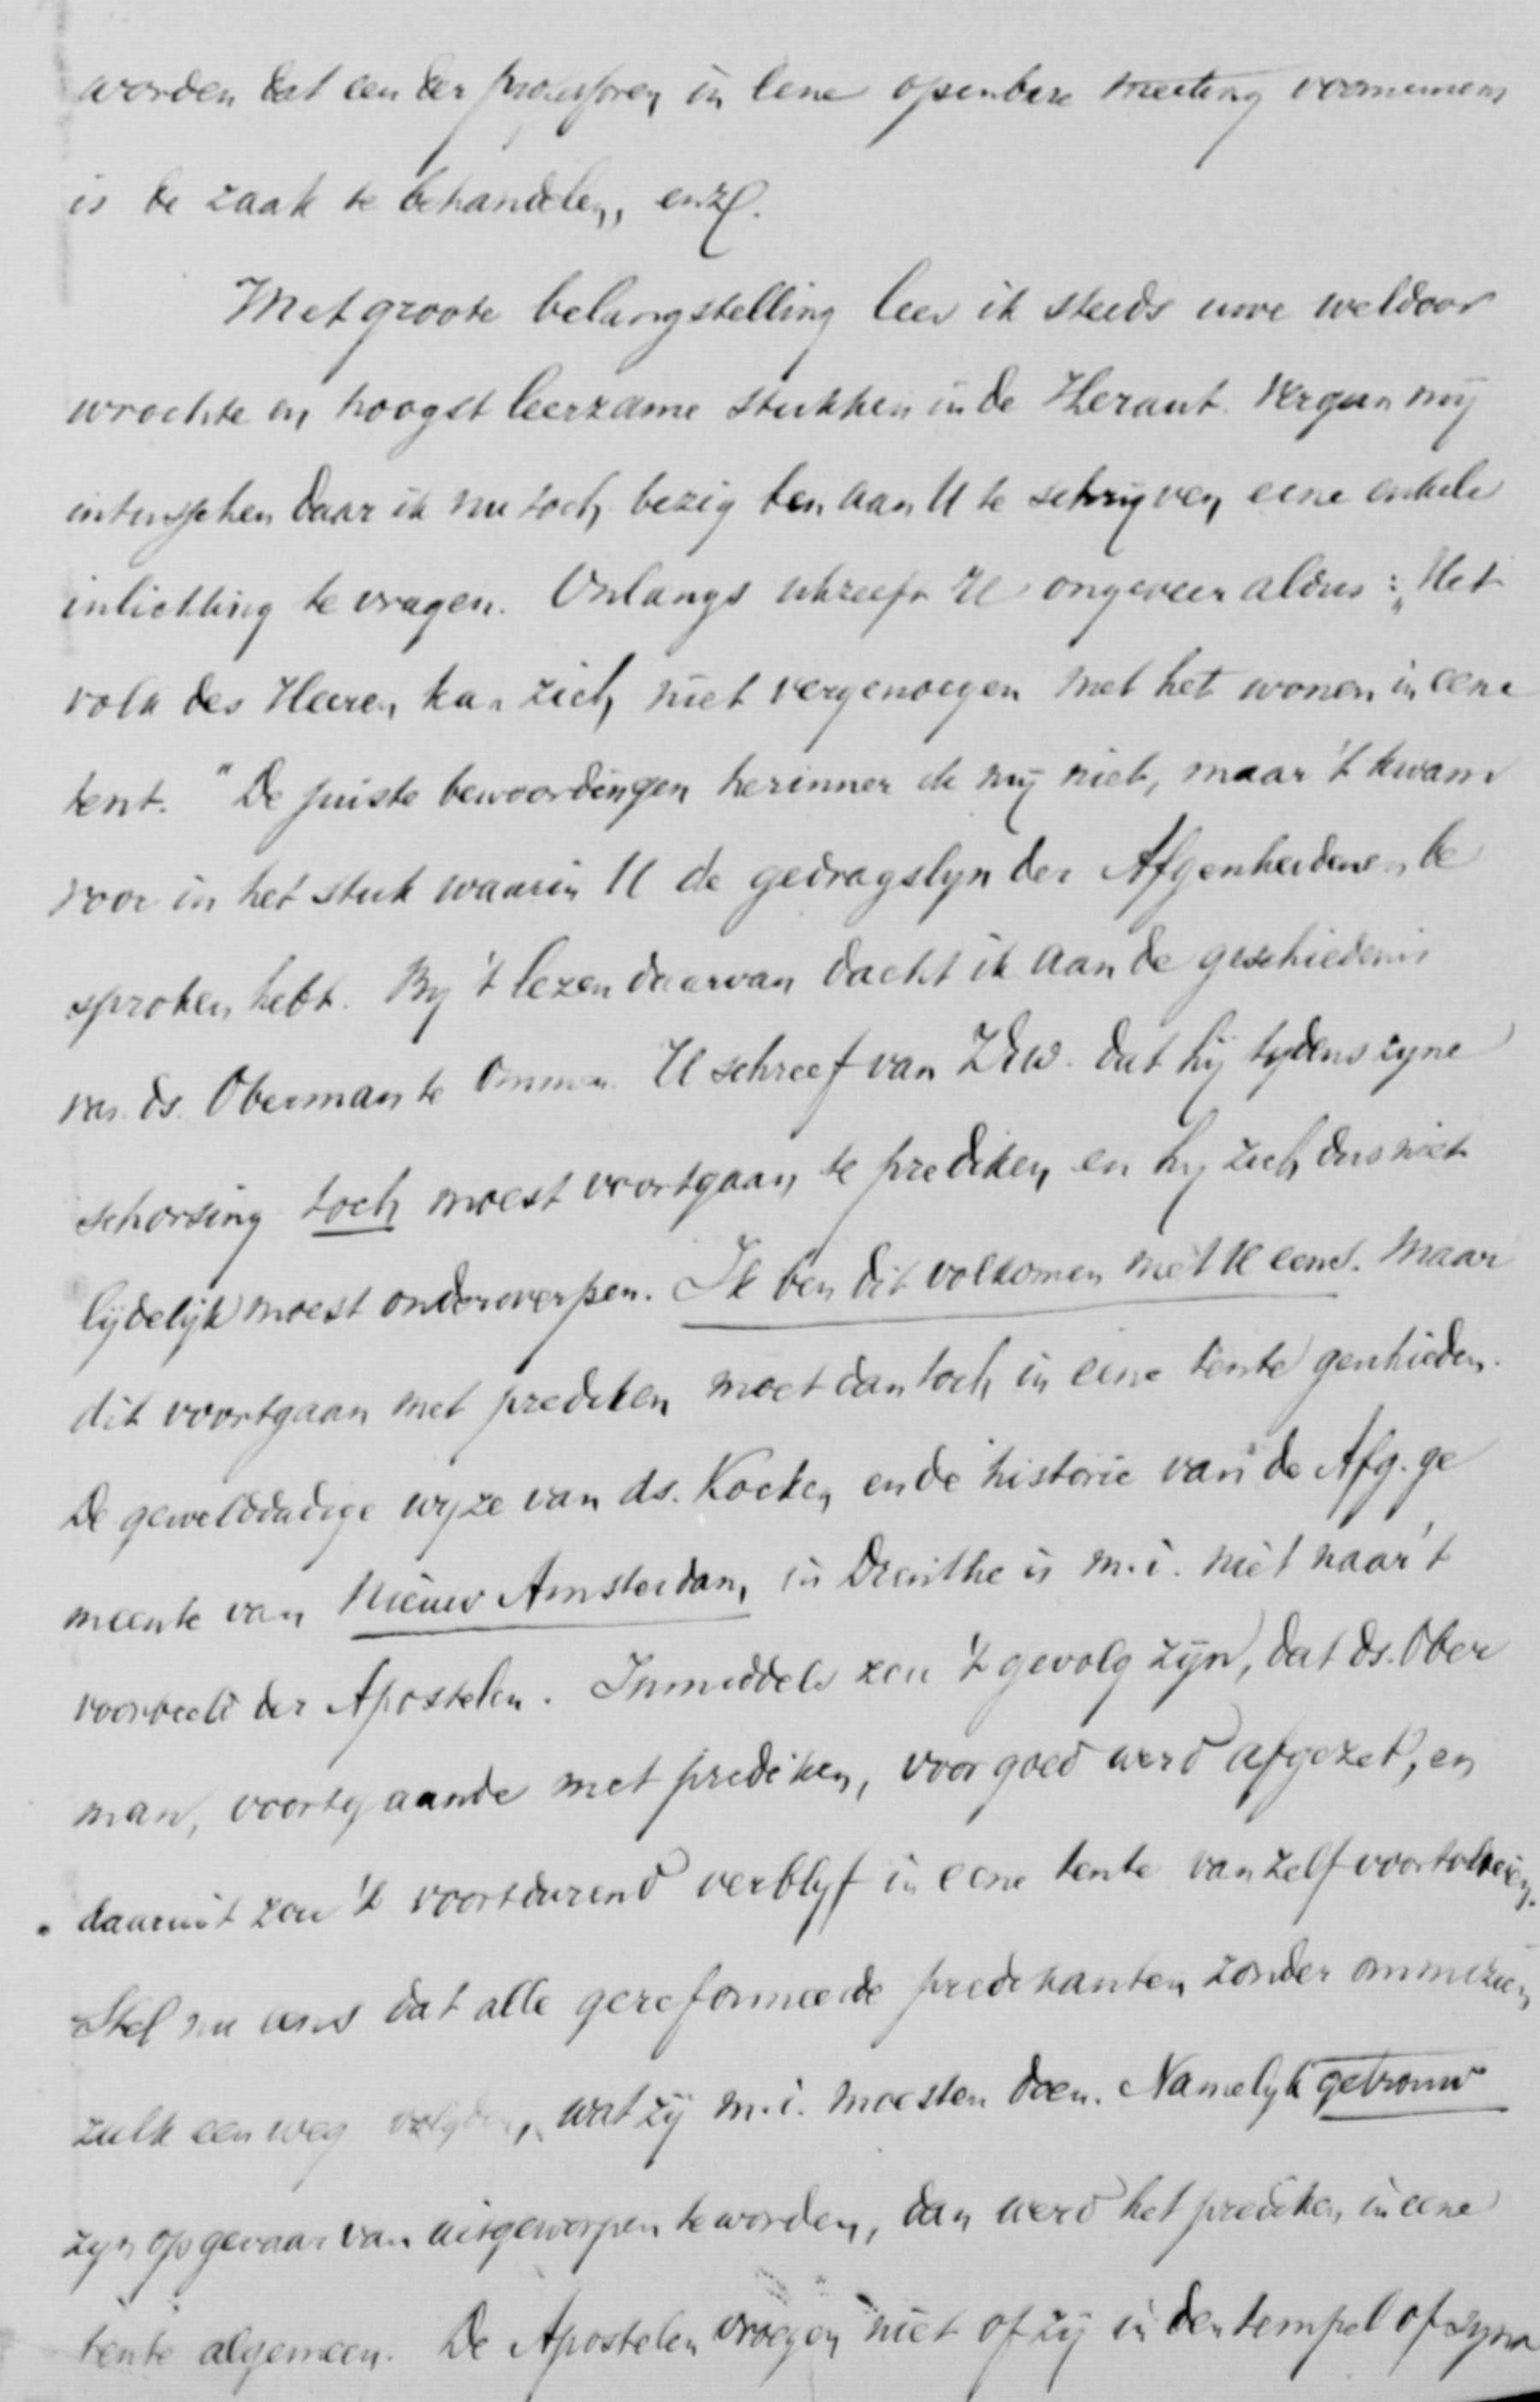 worden dat een der professoren in eene openbare meeting voornemens
is de zaak te behandelen, enz.
Met groote belangstelling lees ik steeds uwe weldoor
wrochte en hoogst leerzame stukken in de Heraut. Vergun mij
intusschen daar ik nu toch bezig ben aan U te schrijven, eene enkele
inlichting te vragen. Onlangs schreeft U ongeveer aldus: „Het
volk des Heeren kan zich niet vergenoegen met het wonen in eene
tent." De juiste bewoordingen herinner ik mij niet, maar 't kwam
voor in het stuk waarin U de gedragslyn der Afgescheidenen be
sproken hebt. By 't lezen daarvan dacht ik aan de geschiedenis
van ds. Oberman te Ommen. U schreef van ZEw. dat hij tydens zyne
schorsing toch moest voortgaan te prediken en hy zich dus niet
lijdelijk moest onderwerpen. Ik ben dit volkomen met U eens. Maar
dit voortgaan met prediken moet dan toch in eene tente geschieden.
De gewelddadige wyze van ds. Kocken en de historie van de Afg. ge
meente van Nieuw Amsterdam, in Drenthe is m.i. niet naar 't
voorbeeld der Apostelen. Inmiddels zou 't gevolg zijn, dat ds. Ober
man, voortgaande met prediken, voorgoed werd afgezet, en
daaruit zou 't voortdurend verblyf in eene tente vanzelf voortvloeien.
Stel nu eens dat alle gereformeerde predikanten zonder ommezien
zulk een weg volgden, wat zij m.i. moesten doen. Namelyk getrouw
zyn op gevaar van uitgeworpen te worden, dan werd het prediken in eene
tente algemeen. De Apostelen vroegen niet of zij in den tempel of syna